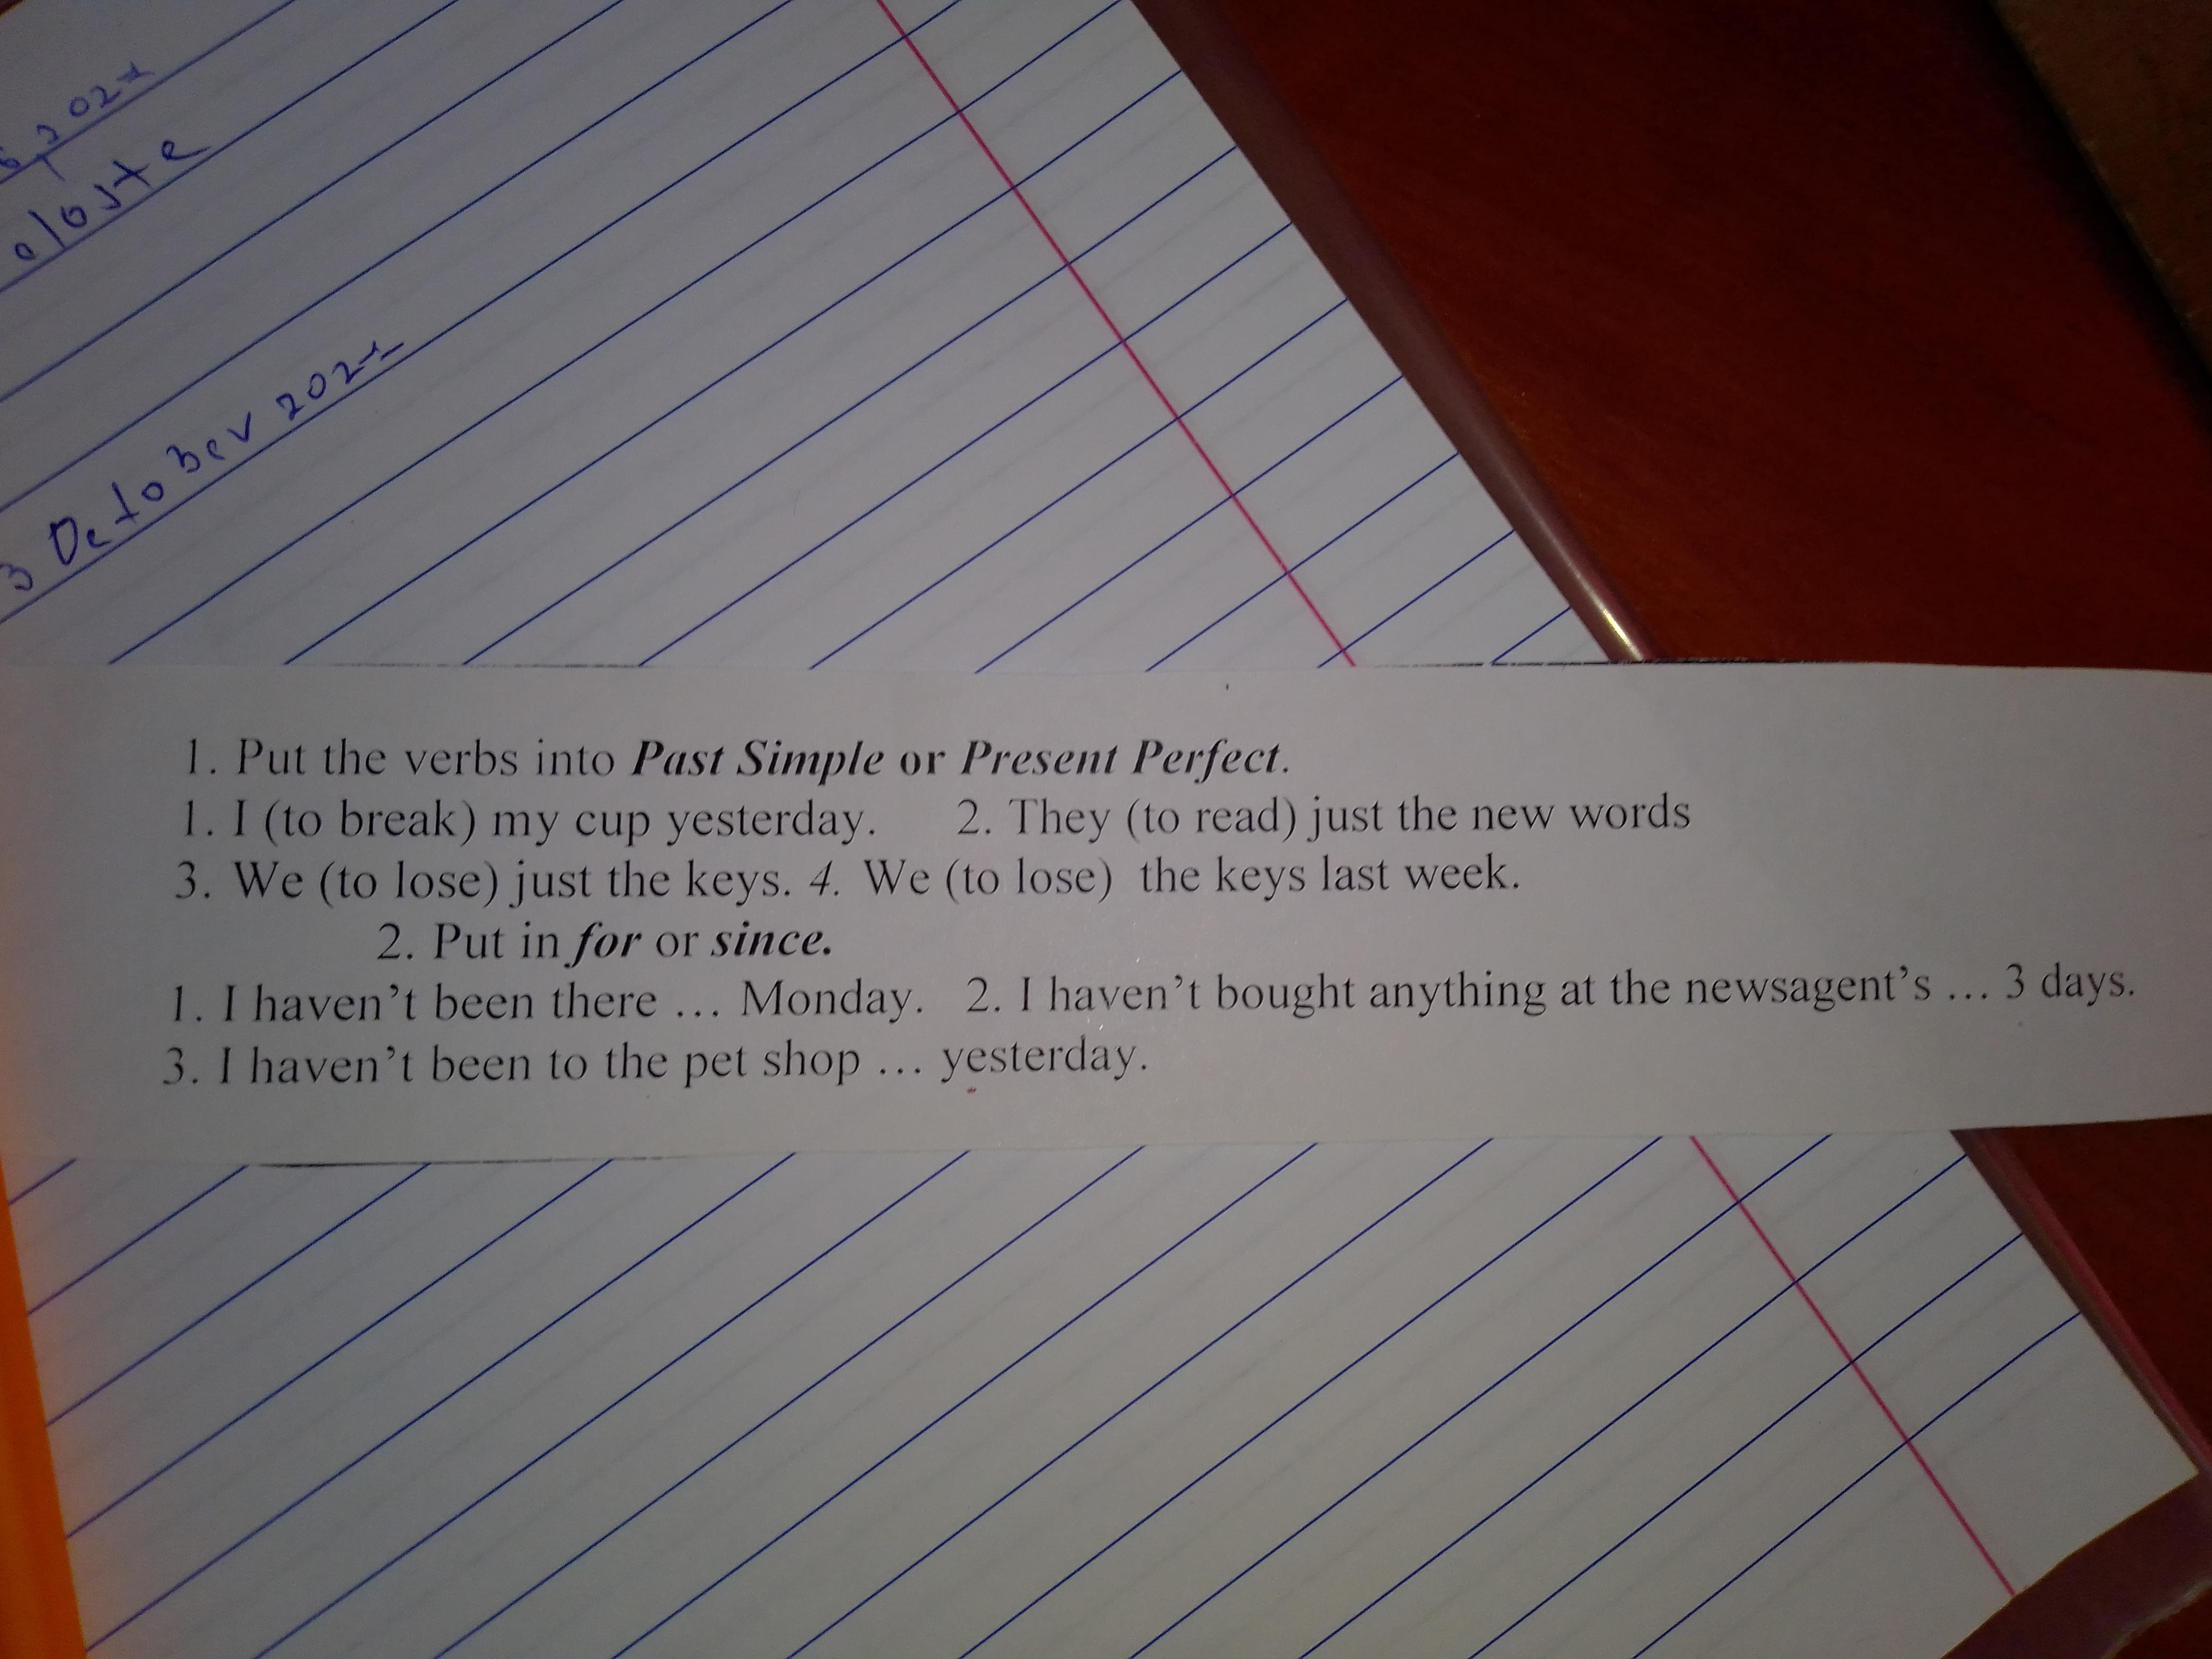 3 October 202
1. Put the verbs into Past Simple or Present Perfect.
1. I (to break) my cup yesterday. 2. They (to read) just the new words
3. We (to lose) just the keys. 4. We (to lose) the keys last week.
2. Put in for or since.
1. I haven't been there … Monday. 2. I haven't bought anything at the newsagent's … 3 days.
3. I haven't been to the pet shop … yesterday.